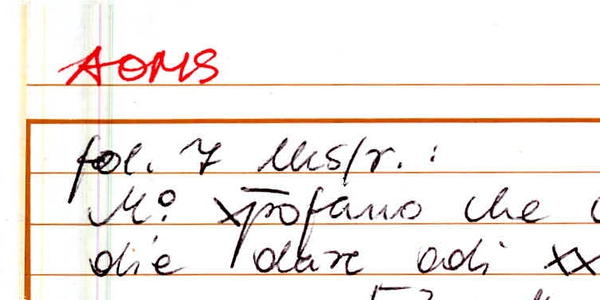 AOMS
fol. 7 llks/r. :
M.º xp̄ofano che
die dare adi xx